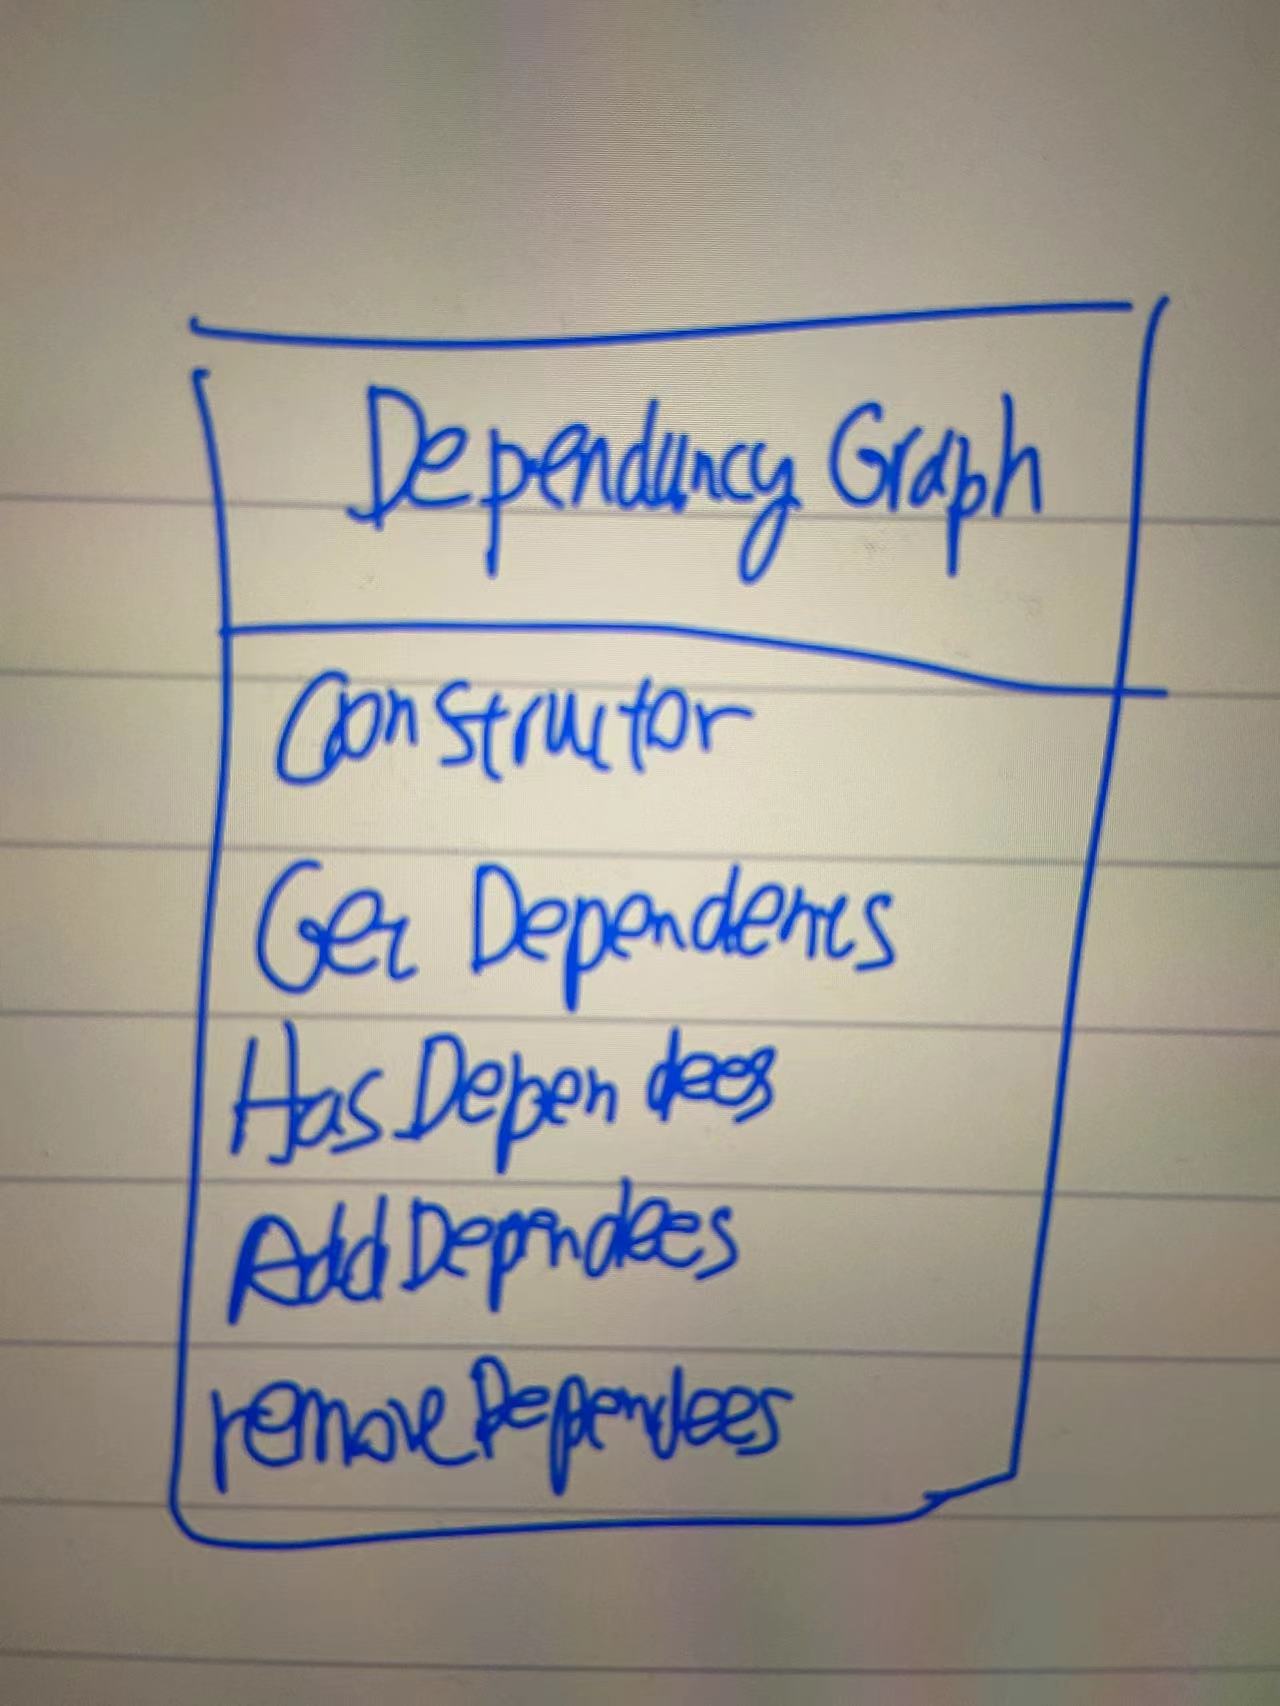 Dependancy Graph
Constructor
Get Dependents
Has Dependees
Add Dependees
remove Dependees